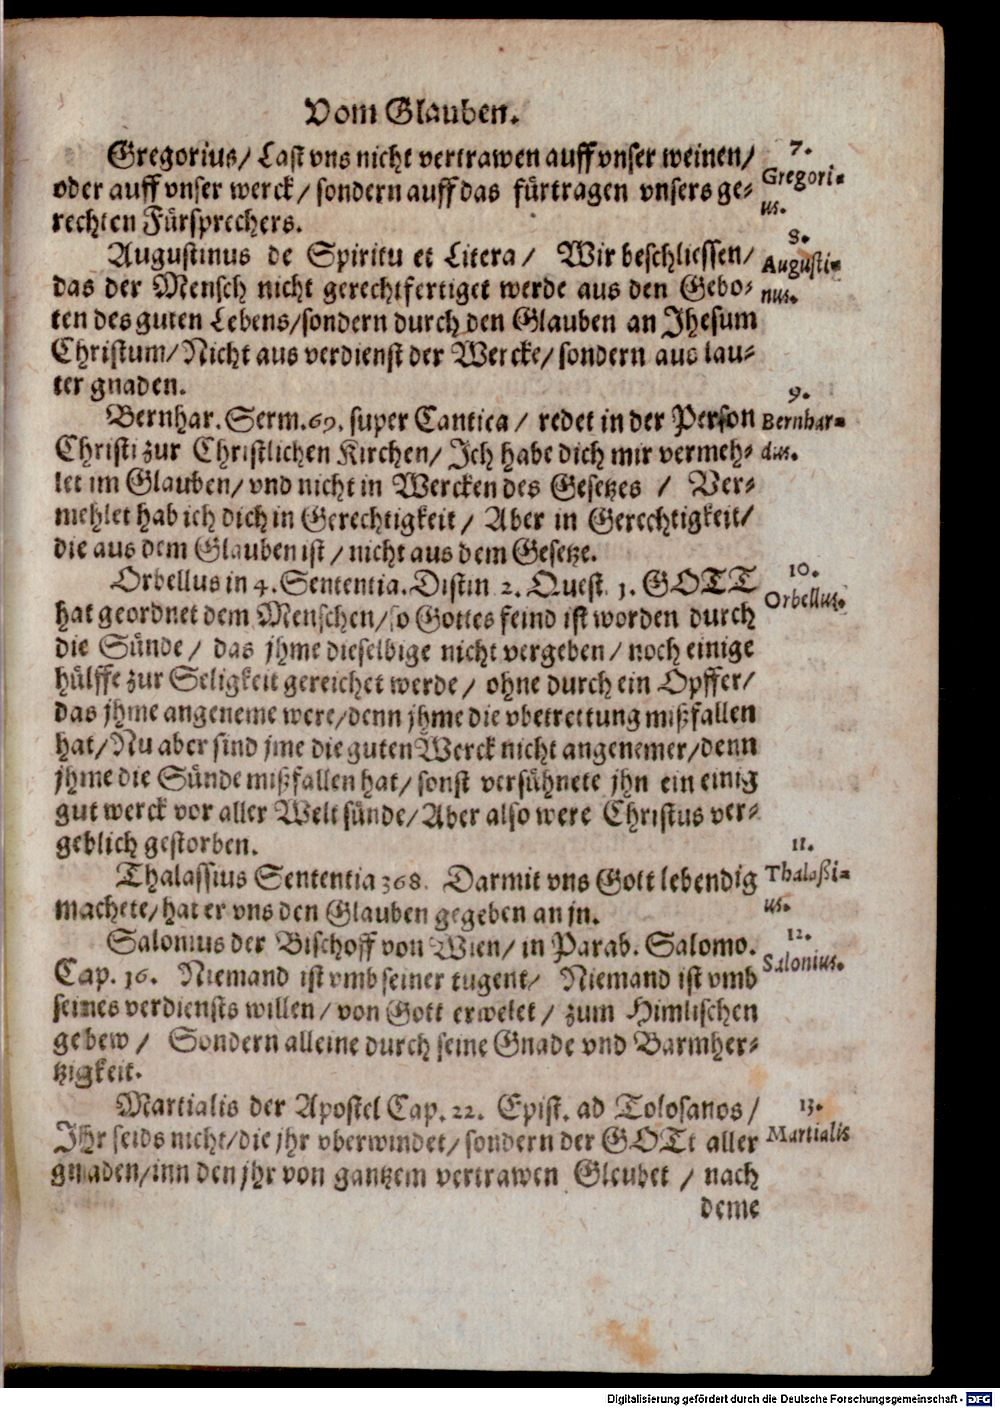 Vom Glauben.
Gregorius/ Last vns nicht vertrawen auff vnser weinen/
oder auff vnser werck/ sondern auff das fürtragen vnsers ge-
rechten Fürsprechers.
7.
Gregori-
us.
Augustinus de Spiritu et Litera/ Wir beschliessen/
das der Mensch nicht gerechtfertiget werde aus den Gebo-
ten des guten Lebens/sondern durch den Glauben an Jhesum
Christum/Nicht aus verdienst der Wercke/ sondern aus lau-
ter gnaden.
8.
Augusti-
nus.
Bernhar. Serm. 69. super Cantica/ redet in der Person
Christi zur Christlichen Kirchen/ Jch habe dich mir vermeh-
let im Glauben/ vnd nicht in Wercken des Gesetzes / Ver-
mehlet hab ich dich in Gerechtigkeit/ Aber in Gerechtigkeit/
die aus dem Glauben ist/ nicht aus dem Gesetze.
9.
Bernhar-
dus.
Orbellus in 4. Sententia. Distin 2. Quest. 1. GOTT
hat geordnet dem Menschen/ so Gottes feind ist worden durch
die Sünde/ das jhme dieselbige nicht vergeben/ noch einige
hülffe zur Seligkeit gereichet werde/ ohne durch ein Opffer/
das jhme angeneme were/denn jhme die vbetrettung mißfallen
hat/Nu aber sind jme die guten Werck nicht angenemer/denn
jhme die Sünde mißfallen hat/ sonst versühnete jhn ein einig
gut werck vor aller Welt sünde/Aber also were Christus ver-
geblich gestorben.
10.
Orbellus.
Thalassius Sententia 368. Darmit vns Gott lebendig
machete/hat er vns den Glauben gegeben an jn.
11.
Thalaßi-
us.
Salonius der Bischoff von Wien/ in Parab. Salomo.
Cap. 16. Niemand ist vmb seiner tugent/ Niemand ist vmb
seines verdiensts willen/ von Gott erwelet/ zum Himlischen
gebew / Sondern alleine durch seine Gnade vnd Barmher-
tzigkeit.
12.
Salonius.
Martialis der Apostel Cap. 22. Epist. ad Tolosanos/
Jhr seids nicht/die jhr vberwindet/ sondern der GOTt aller
gnaden/inn den jhr von gantzem vertrawen Gleubet / nach
deme
13.
Martialis
Digitalisierung gefördert durch die Deutsche Forschungsgemeinschaft - DFG